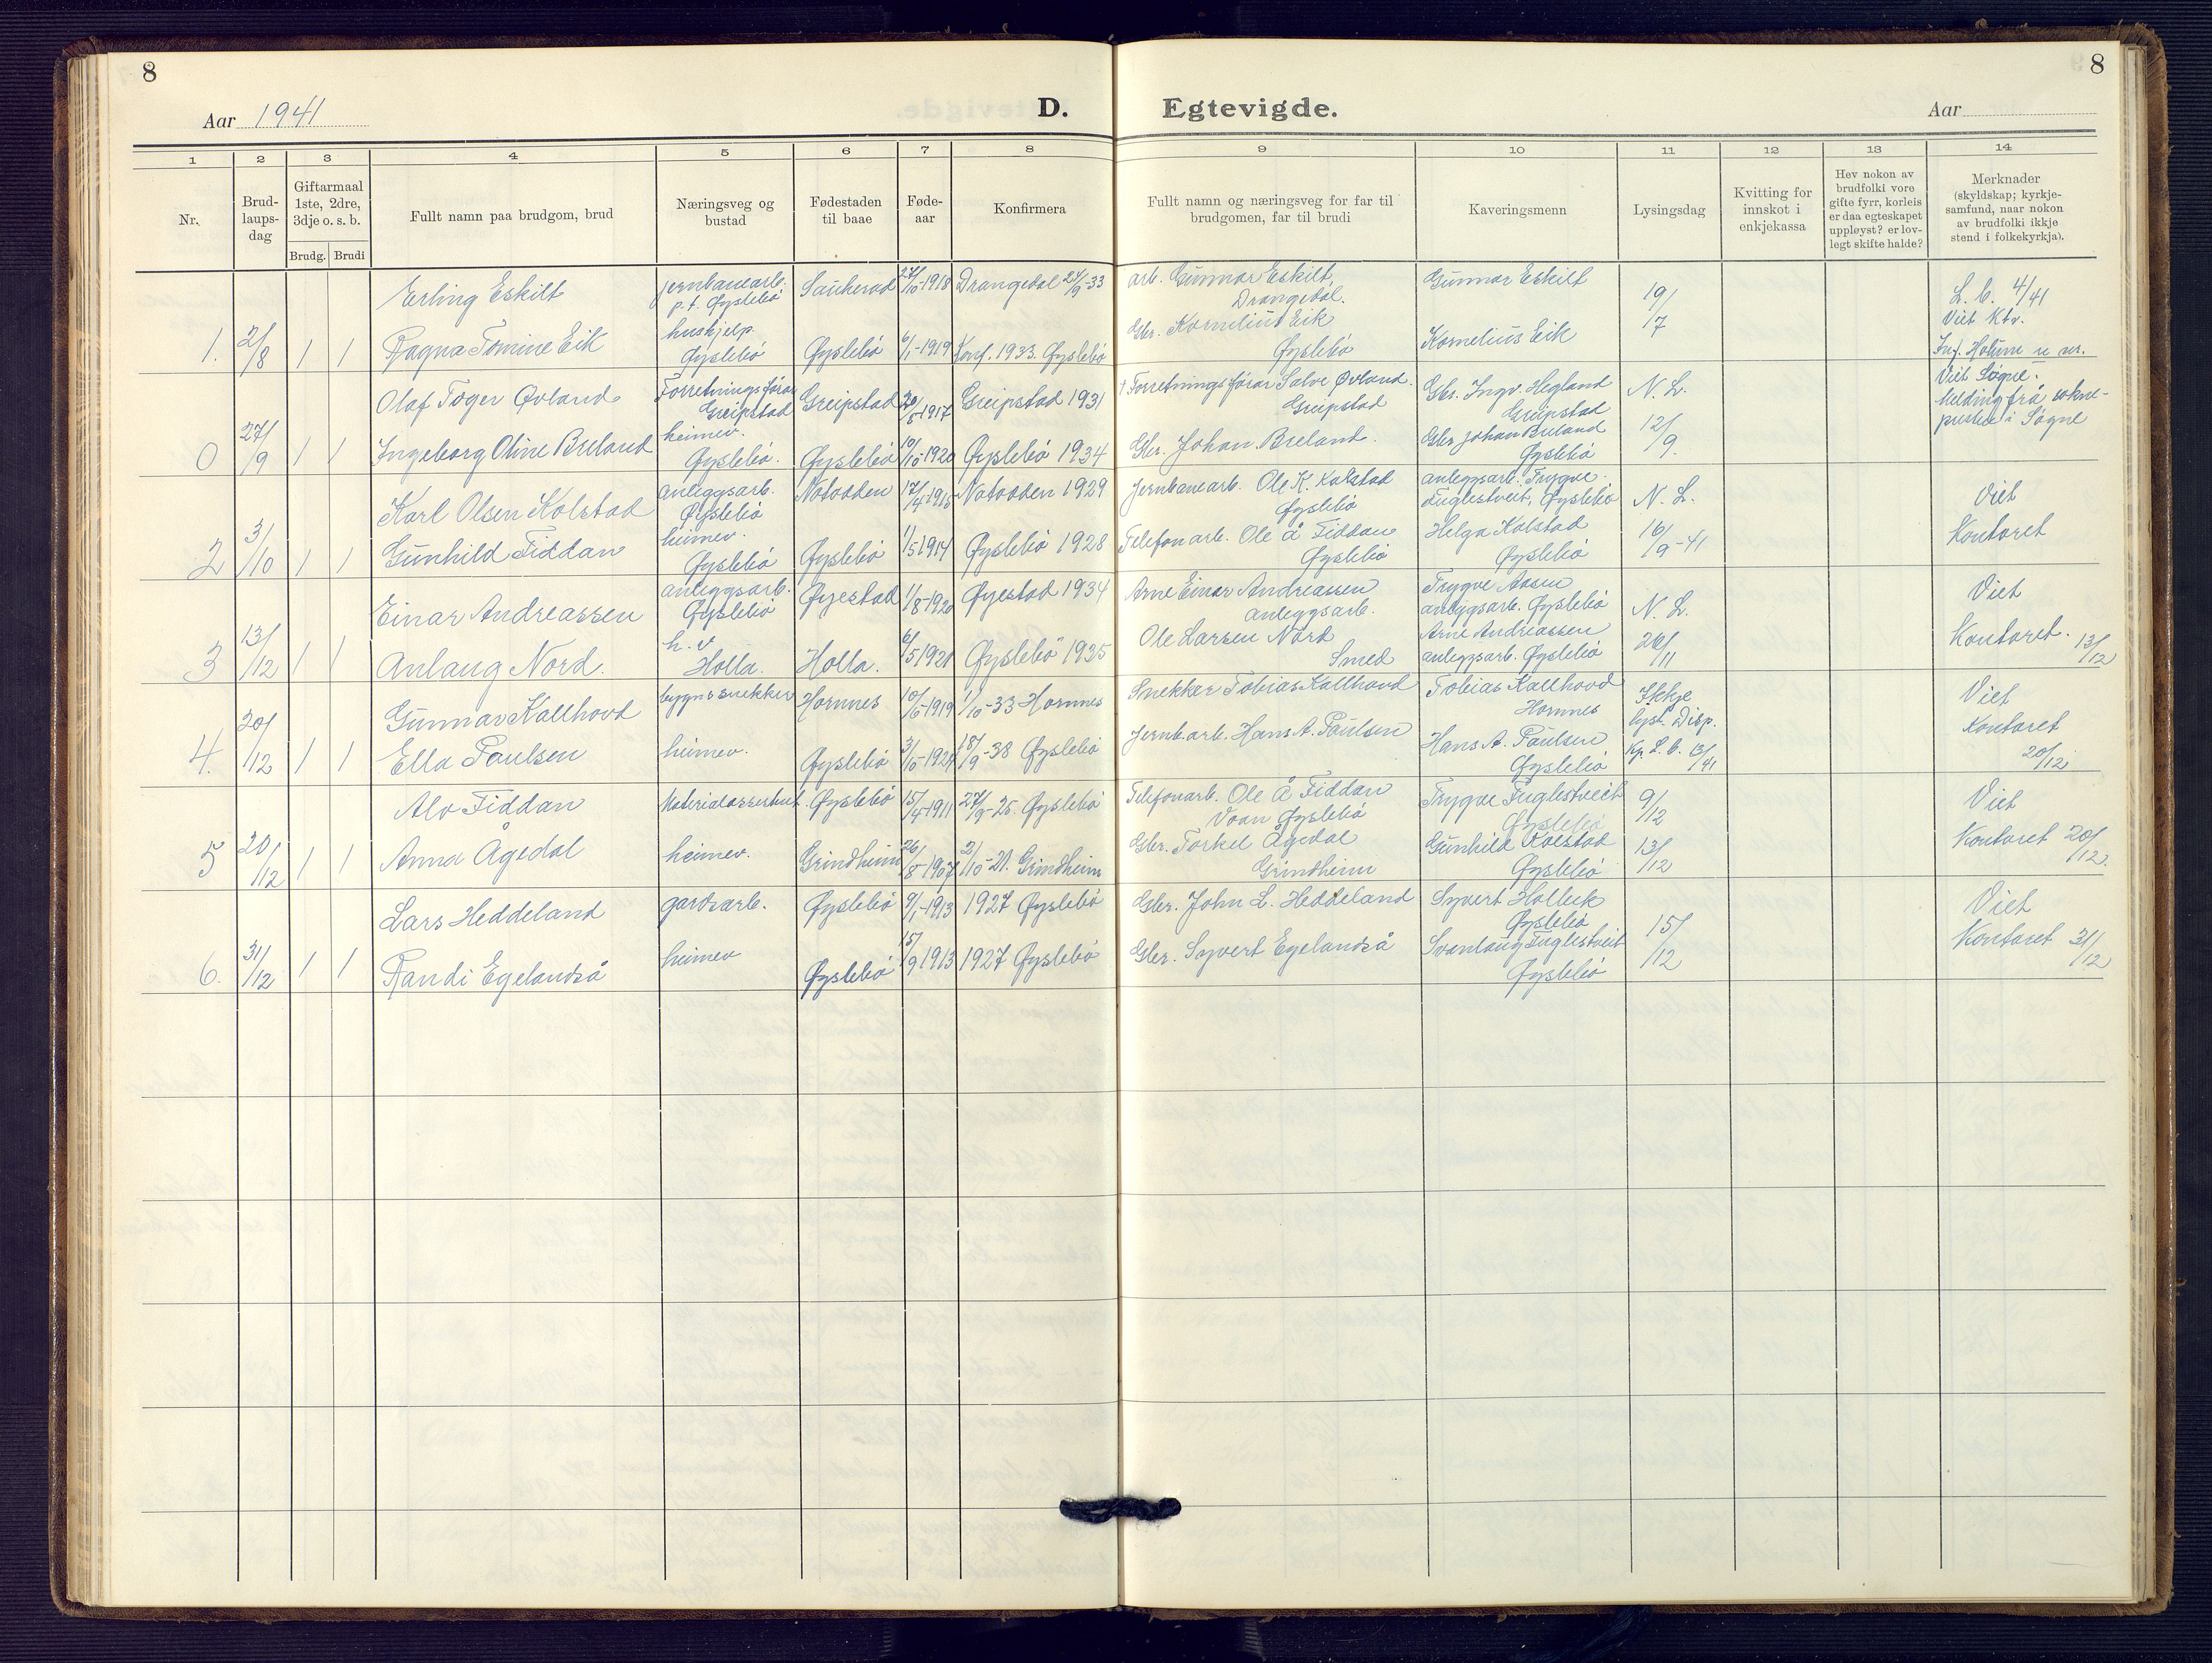 8
8
Aar 1941
D. Egtevigde.
Aar
1 2 3 4 5 6 7 8 9 10 11 12 13 14
Nr.
Brud-
laups-
dag
Giftarmaal
1ste, 2dre,
3dje o. s. b.
Brudg. Brudi
Fullt namn paa brudgom, brud
Næringsveg og
bustad
Fødestaden
til baae
Føde-
aar
Konfirmera
Fullt namn og næringsveg for far til
brudgomen, far til brudi
Kaveringsmenn
Lysingsdag
Kvitting for
innskot i
enkjekassa
Hev nokon av
brudfolki vore
gifte fyrr, korleis
er daa egteskapet
uppløyst? er lov-
legt skifte halde?
Merknader
(skyldskap; kyrkje-
samfund, naar nokon
av brudfolki ikkje
stend i folkekyrkja).
1. 2/8 1 1
Erling Eskilt
jernbanearb.
p.t. Øyslebö
Saukerad 27/10-1918 Drangedal 24/9-33
arb. Gunnar Eskilt,
Drangedal.
Gunnar Eskilt
Ragna Tomine Eik
hushjelp.
Øyslebö
Øyslebö 6/1-1919 Konf. 1933. Øyslebö
Gbr. Kornelius Eik
Øyslebö
Kornelius Eik
19/7
L. b. 4/41
Viet Ktr.
Inf. Holum u nr.
0 27/9 1 1
Olaf Tøger Øvland
Forretningsförar
Greipstad
Greipstad 20/8-1917 Greipstad 1931
† Forretningsförar Salve Øvland.
Greipstad
Gbr. Ingv. Hegland
Greipstad
N. L.
Ingeborg Oline Breland
heimev.
Øyslebö.
Øyslebö 10/10-1920 Øyslebö 1934
Gbr. Johan Breland.
Gbr. Johan Breland
Øyslebö
12/9.
Viet Sögne.
Melding frå sokne-
presten i Sögne
2 3/10 1 1
Karl Olsen Kolstad
anleggsarb.
Øyslebö
Notodden 17/4-1915 Notodden 1929
Jernbanearb. Ole K. Kolstad
Øyslebö
anleggsarb. Trygve
Fuglestveit, Øyslebö
N. L.
Gunhild Fiddan
heimev.
Øyslebö
Øyslebö 1/5 1914 Øyslebö 1928
Telefonarb. Ole Å Fiddan
Øyslebö
Helga Kolstad
Øyslebö
16/9-41
Viet
Kontoret
3 13/12 1 1
Einar Andreassen
anleggsarb.
Øyslebö
Øyestad 1/8-1920 Øyestad 1934
Arne Einar Andreassen
anleggsarb.
Trygve Aasen
anleggsarb. Øyslebö
N. L.
Anlaug Nord.
h. v
Holla.
Holla. 6/5 1921 Øyslebö 1935
Ole Larsen Nord
Smed
Arne Andreassen
anleggsarb. Øyslebö
26/11
Viet
Kontoret. 13/12
4. 20/12 1 1
Gunnar Kallhovd
bygn. snekker
Hornnes 10/6-1919 1/10-33 Hornnes
Snekker Tobias Kallhovd
Tobias Kallhovd
Hornnes
Ikkje
lyst. Disp.
Ella Paulsen
heimev.
Øyslebö 3/10-1924 18/9-38 Øyslebö
Jernb.arb. Hans A. Paulsen
Hans A. Paulsen
Øyslebö
Kp. L. b. 13/41
Viet
Kontoret
20/12
5 20/12 1 1
Alv Fiddan
Materialassistent.
Øyslebö 15/4-1911 27/9-25. Øyslebö
Telefonarb. Ole Å Fiddan
Voan Øyslebö
Trygve Fuglestveit
Øyslebö
9/12
Anna Ågedal
heimev.
Grindheim 26/8-1907 2/10-21. Grindheim
Gbr. Torkel Ågedal
Grindheim
Gunhild Kolstad
Øyslebö
13/12
Viet
Kontoret 20/12.
6. 31/12 1 1
Lars Heddeland
gardsarb.
Øyslebö 9/1-1913 1927 Øyslebö
Gbr. John L. Heddeland
Syvert Holbek
Øyslebö
Randi Egelandså
heimev
Øyslebö 15/9 1913 1927 Øyslebö
Gbr. Syvert Egelandså
Svanlaug Fuglestveit
Øyslebö
15/12
Viet
Kontoret 31/12